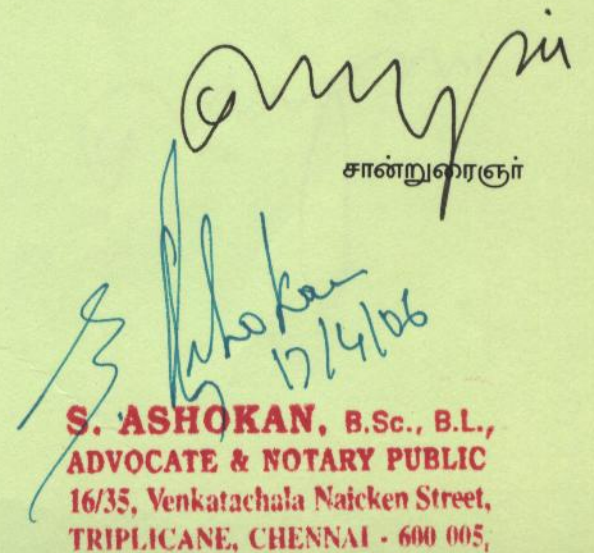 சான்றுரைஞர்
S. Ashokan
17/4/06
S. ASHOKAN, B.Sc., B.L.,
ADVOCATE & NOTARY PUBLIC
16/35, Venkatachala Naicken Street,
TRIPLICANE, CHENNAI - 600 005,